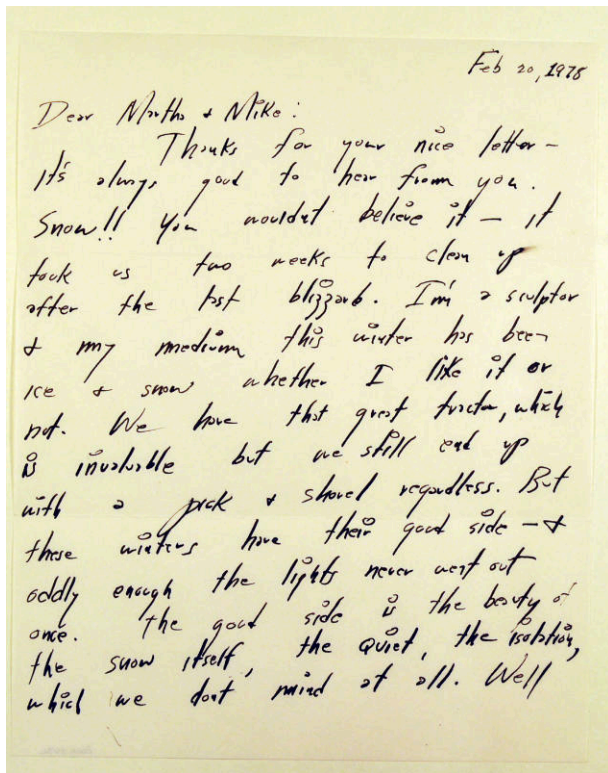 Feb 20, 1978
Dear Martha & Mike:
Thanks for your nice letter —
it's always good to hear from you.
Snow!! You wouldnt believe it — it
took us two weeks to clean up
after the last blizzard. I'm a sculptor
& my medium this winter has been
ice & snow whether I like it or
not. We have that great tractor, which
is invaluable but we still end up
with a pick & shovel regardless. But
these winters have their good side — &
oddly enough the lights never went out
once. The good side is the beauty of
the snow itself, the quiet, the isolation,
which we dont mind at all. Well